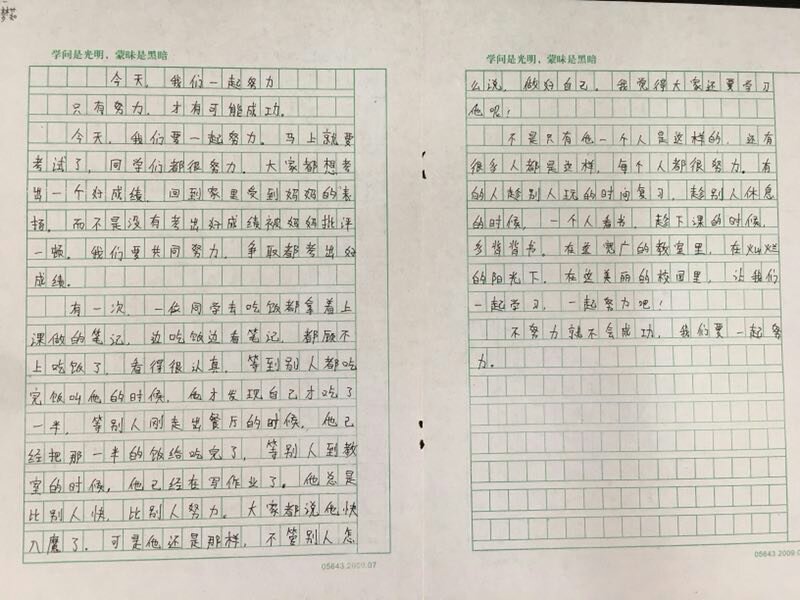 学问是光明，蒙昧是黑暗
今天，我们一起努力
只有努力，才有可能成功。
今天，我们要一起努力。马上就要
考试了，同学们都很努力。大家都想考
出一个好成绩，回到家里受到妈妈的表
扬。而不是没有考出好成绩被妈妈批评
一顿。我们要共同努力，争取都考出好
成绩。
有一次，一位同学去吃饭都拿着上
课做的笔记，边吃饭边看笔记，都顾不
上吃饭了，看得很认真，等到别人都吃
完饭叫他的时候，他才发现自己才吃了
一半，等别人刚走出餐厅的时候，他已
经把那一半的饭给吃完了，等别人到教
室的时候，他已经在写作业了。他总是
比别人快，比别人努力。大家都说他快
入魔了。可是他还是那样，不管别人怎
05643.2009.07
学问是光明，蒙昧是黑暗
么说，做好自己。我觉得大家还要学习
他呢！
不是只有他一个人是这样的，还有
很多人都是这样，每个人都很努力。有
的人趁别人玩的时间复习，趁别人休息
的时候，一个人看书，趁下课的时候，
多背背书。在这宽广的教室里，在灿烂
的阳光下，在这美丽的校园里，让我们
一起学习，一起努力吧！
不努力就不会成功，我们要一起努
力。
05643.2009.0